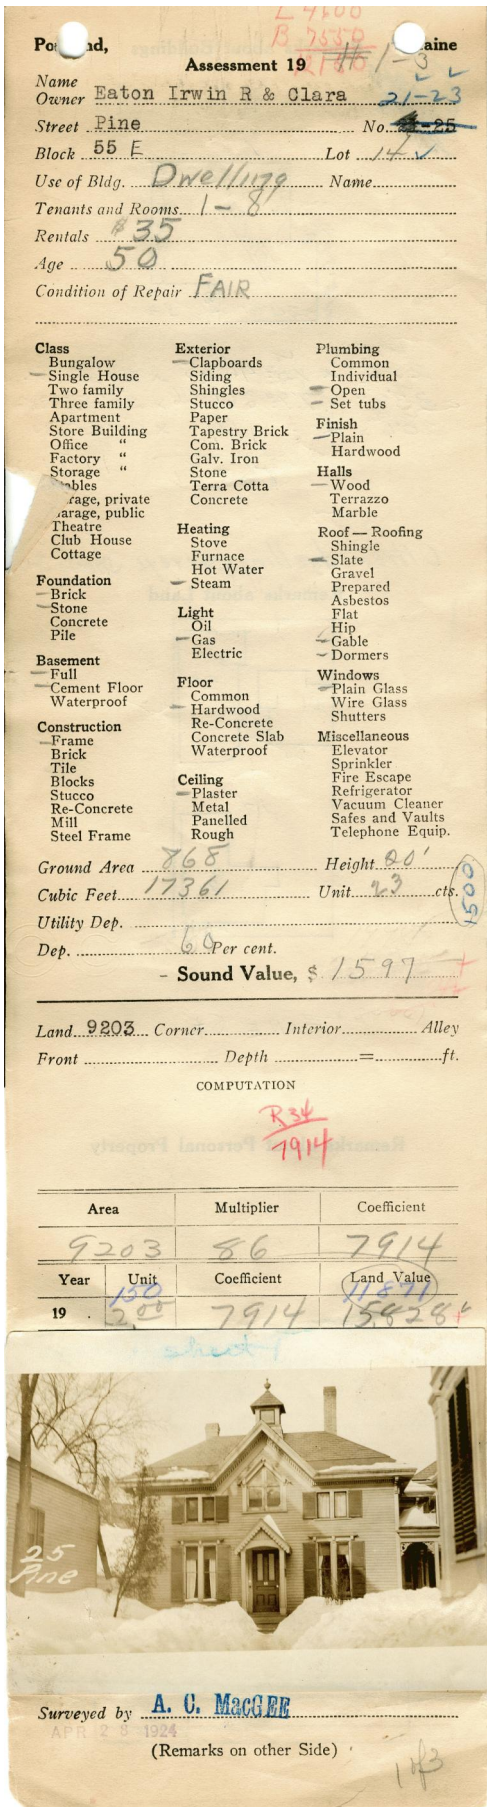 L 4600
B 7550
Portland, Maine
#1-3
Assessment 19
Name
Owner Eaton Irwin R & Clara 21-23
Street Pine No. 21-25
Block 55 E Lot 14 ✓
Use of Bldg. Dwelling Name
Tenants and Rooms 1-8
Rentals $35
Age 50
Condition of Repair FAIR
Class
Bungalow
Single House
Two family
Three family
Apartment
Store Building
Office "
Factory "
Storage "
ables
rage, private
arage, public
Theatre
Club House
Cottage
Foundation
Brick
Stone
Concrete
Pile
Basement
Full
Cement Floor
Waterproof
Construction
Frame
Brick
Tile
Blocks
Stucco
Re-Concrete
Mill
Steel Frame
Exterior
Clapboards
Siding
Shingles
Stucco
Paper
Tapestry Brick
Com. Brick
Galv. Iron
Stone
Terra Cotta
Concrete
Heating
Stove
Furnace
Hot Water
Steam
Light
Oil
Gas
Electric
Floor
Common
Hardwood
Re-Concrete
Concrete Slab
Waterproof
Ceiling
Plaster
Metal
Panelled
Rough
Plumbing
Common
Individual
Open
Set tubs
Finish
Plain
Hardwood
Halls
Wood
Terrazzo
Marble
Roof — Roofing
Shingle
Slate
Gravel
Prepared
Asbestos
Flat
Hip
Gable
Dormers
Windows
Plain Glass
Wire Glass
Shutters
Miscellaneous
Elevator
Sprinkler
Fire Escape
Refrigerator
Vacuum Cleaner
Safes and Vaults
Telephone Equip.
Ground Area 868 Height 20'
Cubic Feet 17361 Unit 23 cts.
1500
Utility Dep.
Dep. 60 Per cent.
- Sound Value, $ 1597
Land 9203 Corner Interior Alley
Front Depth = ft.
COMPUTATION
R34
7914
Area Multiplier Coefficient
9203 86 7914
Year Unit Coefficient Land Value
150 11871
19 . 2.00 7914 15828
25
Pine
Surveyed by A. C. MacGEE
APR 28 1924
(Remarks on other Side)
1 of 3